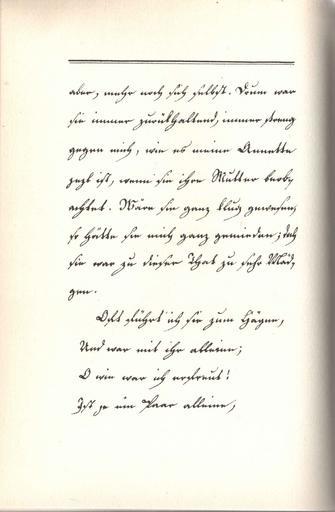 aber, mehr noch sich selbst. Drum war
sie immer zurückhaltend, immer streng
gegen mich, wie es meine Annette
jezt ist, wenn sie ihre Mutter beob-
achtet. Wäre sie ganz klug gewesen,
so hätte sie mich ganz gemieden; doch
sie war zu dieser That zu sehr Mäd-
gen.
Oft führt ich sie zum Hayne,
Und war mit ihr alleine;
O wie war ich erfreut!
Ist je ein Paar alleine,